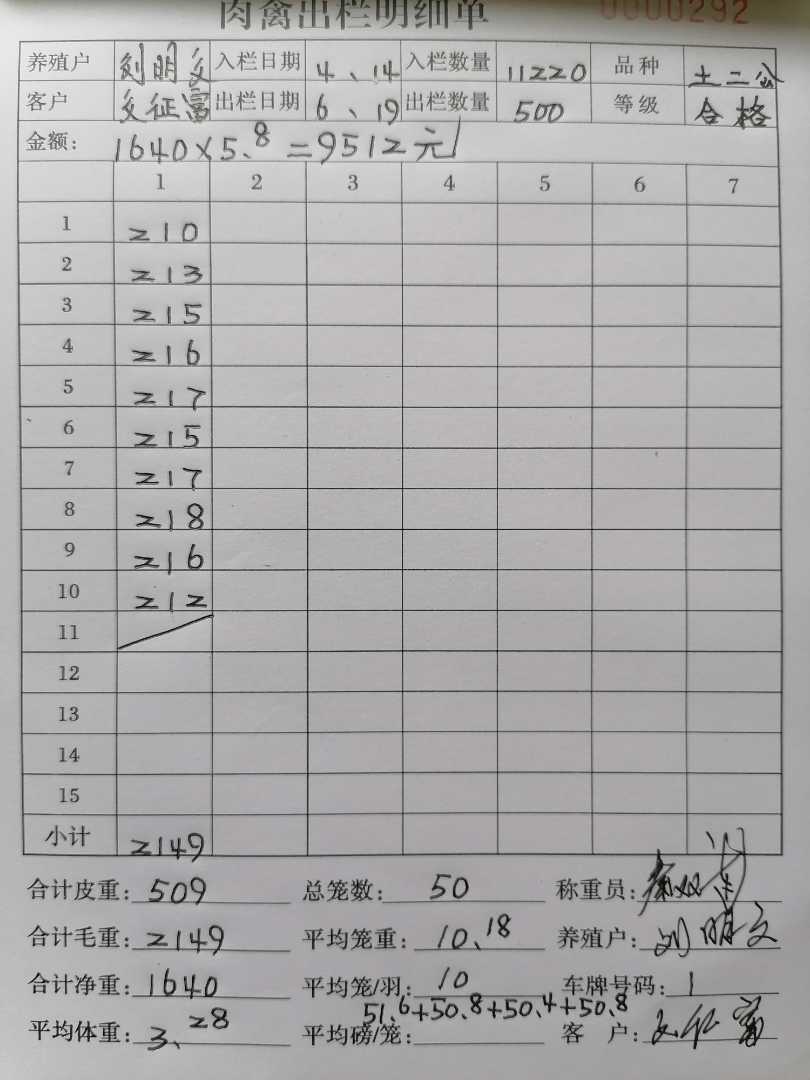 肉禽出栏明细单 0000292
养殖户 刘明文 入栏日期 4、14 入栏数量 11220 品种 土二公
客户 文征富 出栏日期 6、19 出栏数量 500 等级 合格
金额: 1640×5.8=9512元
1 2 3 4 5 6 7
1 210
2 213
3 215
4 216
5 217
6 215
7 217
8 218
9 216
10 212
11
12
13
14
15
小计 2149
合计皮重: 509 总笼数: 50 称重员:
合计毛重: 2149 平均笼重: 10.18 养殖户: 刘明文
合计净重: 1640 平均笼/羽: 10 车牌号码: 1
51.6+50.8+50.4+50.8
平均体重: 3.28 平均磅/笼: 客 户: 文征富